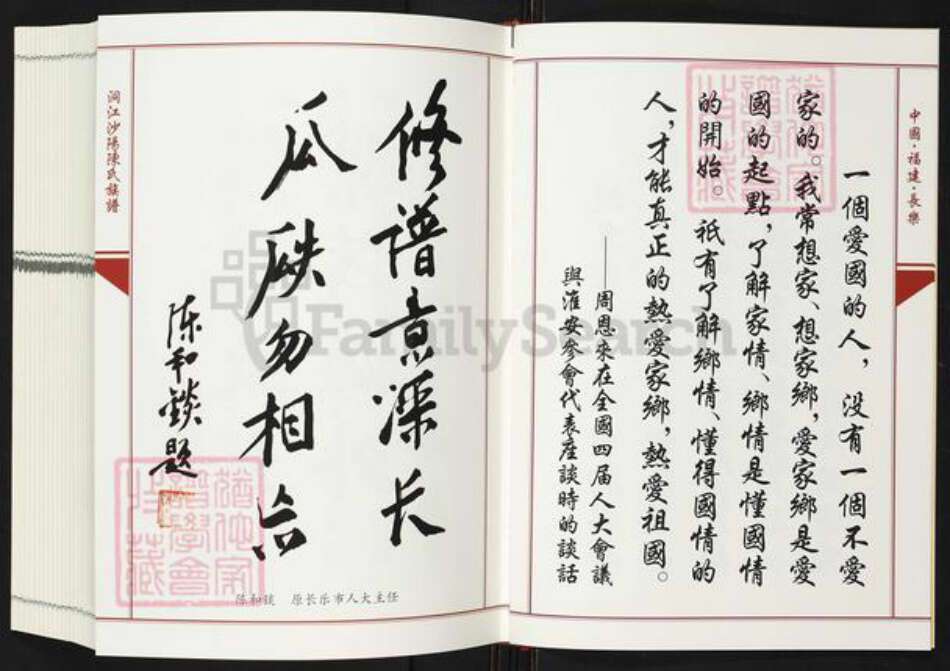 中國·福建·長樂
一個愛國的人，没有一個不愛
家的。我常想家、想家鄉，愛家鄉是愛
國的起點，了解家情、鄉情是懂國情
的開始。祇有了解鄉情、懂得國情的
人，才能真正的熱愛家鄉，熱愛祖國。
——周恩來在全國四届人大會議
與淮安參會代表座談時的談話
修谱意深长
瓜瓞勿相忘
陈和錟题
陈和錟 原长乐市人大主任
洞江沙陽陳氏族譜
FamilySearch